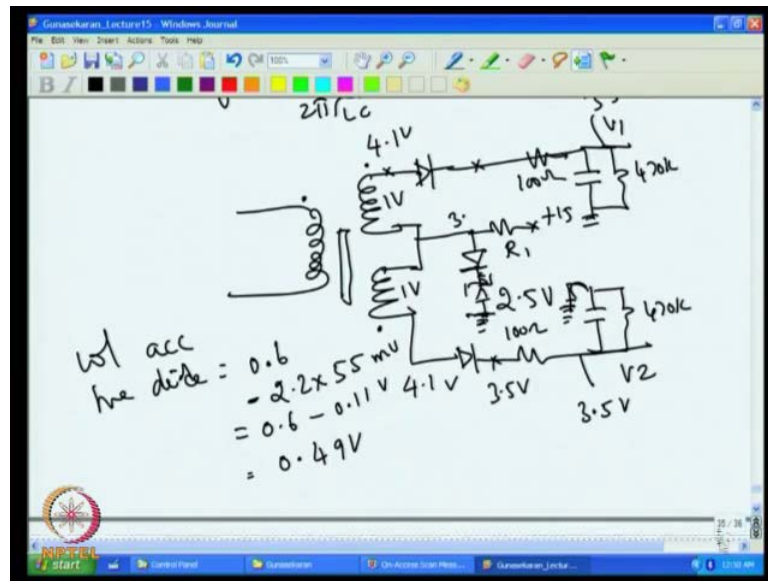 Gunasekaran_Lecture15 - Windows Journal
File Edit View Insert Actions Tools Help
100%
B I
2π√LC
4.1V
V1
1V
100Ω
470K
3.
+15
R1
1V
2.5V
100Ω
470K
= 0.6
- 2.2 x 55 mV
= 0.6 - 0.11V
= 0.49V
4.1 V
3.5V
V2
3.5 V
35 / 36
NPTEL
start
Control Panel
Gunasekaran
On-Access Scan Mess...
Gunasekaran_Lectur...
12:50 AM